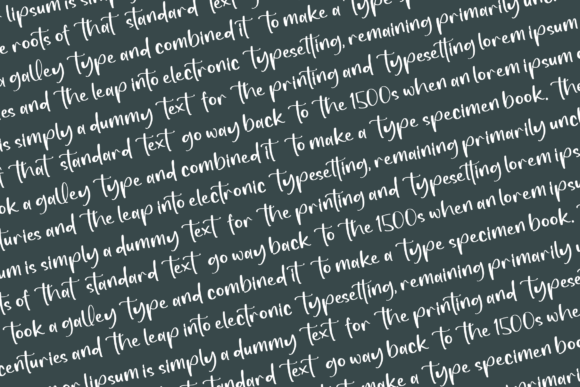 lipsum is
e roots of that standard text
a galley type and combined it to make a type
ries and the leap into electronic typesetting, remaining primarily
is simply a dummy text for the printing and typesetting lorem ipsum
that standard text go way back to the 1500s when an lorem ipsum
ok a galley type and combined it to make a type specimen book. The
turies and the leap into electronic typesetting, remaining primarily unc
um is simply a dummy text for the printing and typesetting lorem ips
ts of that standard text go way back to the 1500s when an lorem ipsu
took a galley type and combined it to make a type specimen book.
centuries and the leap into electronic typesetting, remaining primarily
lipsum is simply a dummy text for the printing and typese
standard text go way back to the 1500s whe
to make a type specimen boo